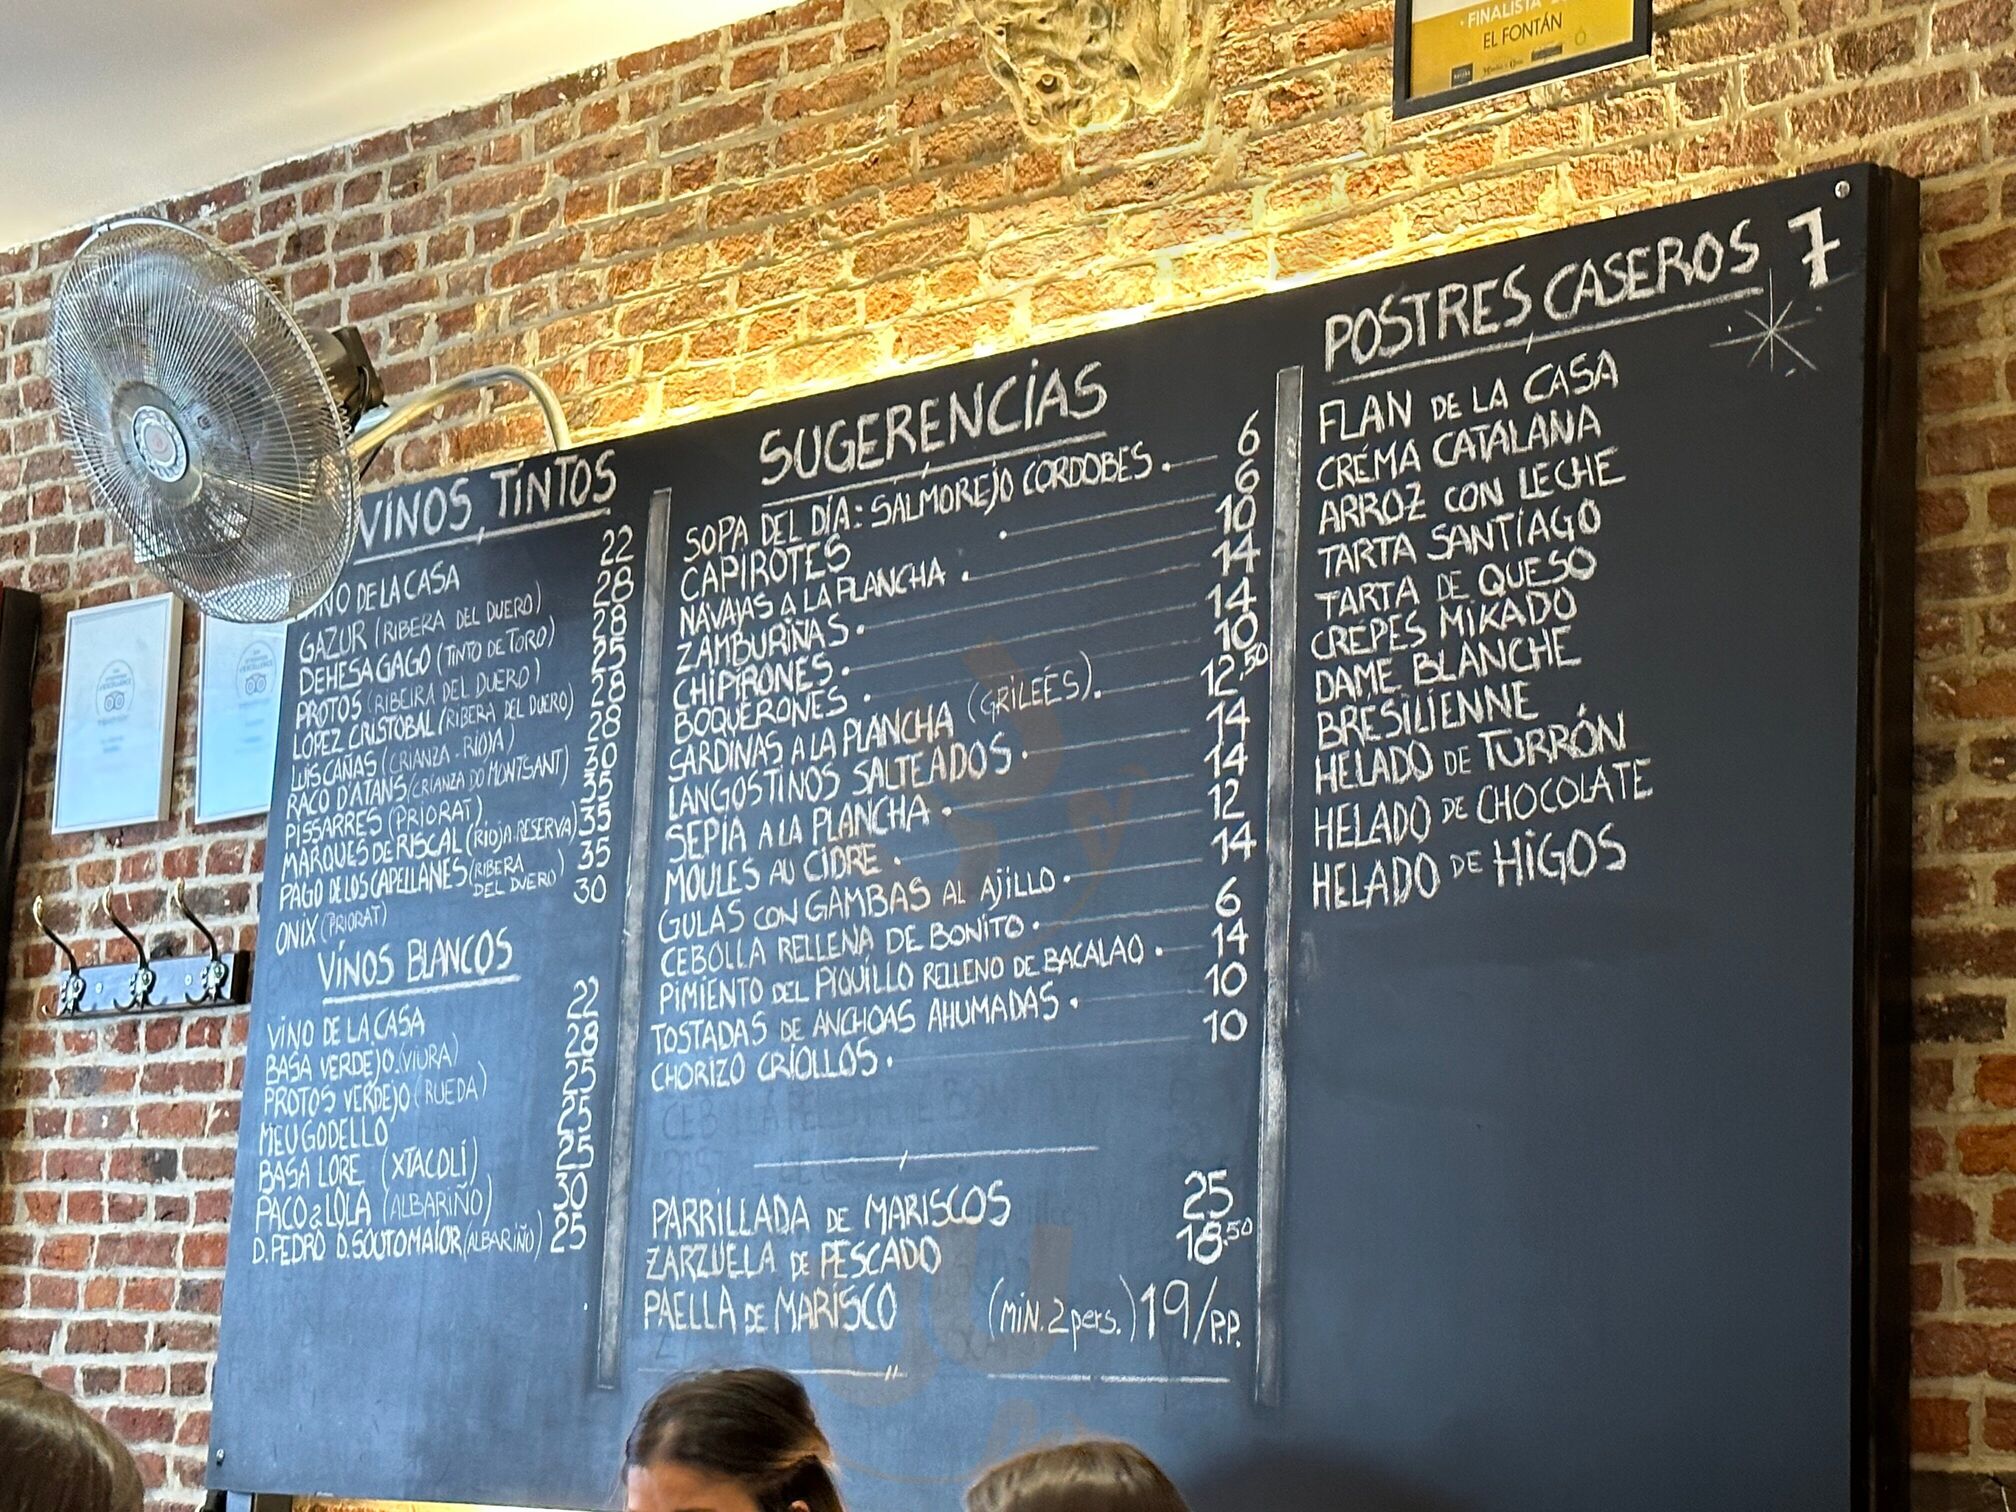 FINALISTA
EL FONTÁN
VINOS TINTOS
VINO DE LA CASA 22
GAZUR (RIBERA DEL DUERO) 28
DEHESA GAGO (TINTO DE TORO) 28
PROTOS (RIBEIRA DEL DUERO) 25
LOPEZ CRISTOBAL (RIBERA DEL DUERO) 28
LUIS CAÑAS (CRIANZA - RIOJA) 28
RACO D'ATANS (CRIANZA DO MONTSANT) 30
PISSARRES (PRIORAT) 35
MARQUES DE RISCAL (RIOJA RESERVA) 35
PAGO DE LOS CAPELLANES (RIBERA DEL DUERO) 35
ONIX (PRIORAT) 30
VINOS BLANCOS
VINO DE LA CASA 22
BASA VERDEJO (VIURA) 28
PROTOS VERDEJO (RUEDA) 25
MEUGODELLO 25
BASA LORE (XTACOLI) 25
PACO & LOLA (ALBARIÑO) 30
D. PEDRO D. SOUTOMAIOR (ALBARIÑO) 25
SUGERENCIAS
SOPA DEL DÍA: SALMOREJO CORDOBES. 6
CAPIROTES 6
NAVAJAS A LA PLANCHA. 10
ZAMBURIÑAS. 14
CHIPIRONES. 14
BOQUERONES. 10
SARDINAS A LA PLANCHA (GRILEÉS). 12.50
LANGOSTINOS SALTEADOS. 14
SEPIA A LA PLANCHA. 14
MOULES AU CIDRE. 12
GULAS CON GAMBAS AL AJILLO. 14
CEBOLLA RELLENA DE BONITO. 6
PIMIENTO DEL PIQUILLO RELLENO DE BACALAO. 14
TOSTADAS DE ANCHOAS AHUMADAS. 10
CHORIZO CRIOLLOS. 10
PARRILLADA DE MARISCOS 25
ZARZUELA DE PESCADO 18.50
PAELLA DE MARISCO (MIN. 2 pers.) 19/P.P.
POSTRES CASEROS 7
FLAN DE LA CASA
CRÉMA CATALANA
ARROZ CON LECHE
TARTA SANTIAGO
TARTA DE QUESO
CREPES MIKADO
DAME BLANCHE
BRESILIENNE
HELADO DE TURRÓN
HELADO DE CHOCOLATE
HELADO DE HIGOS